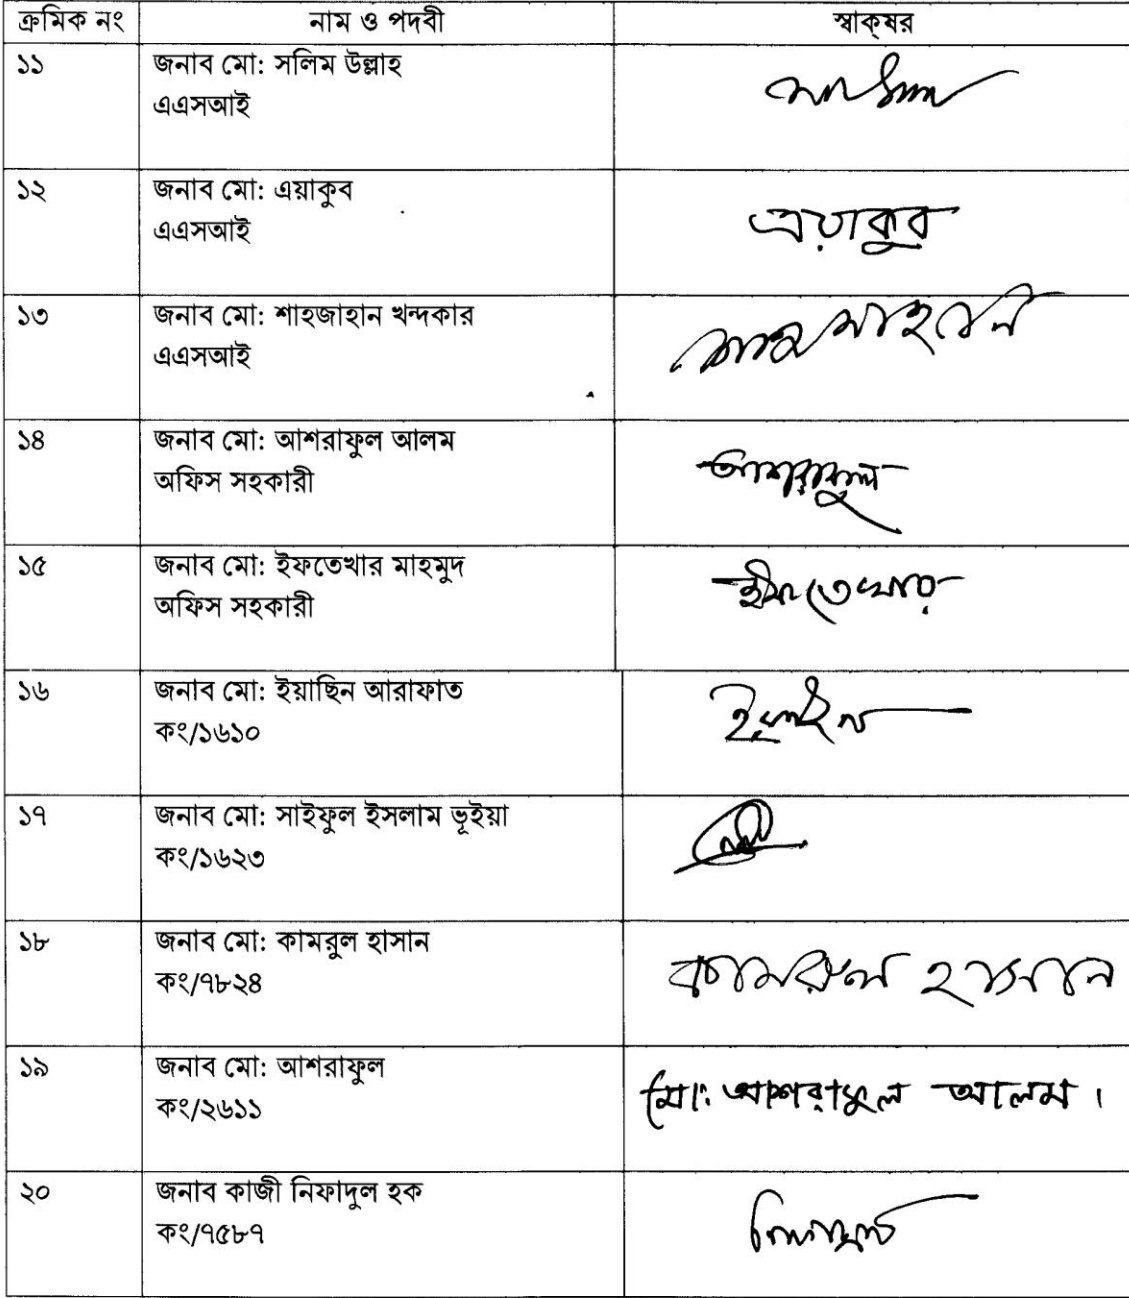 ক্রমিক নং নাম ও পদবী স্বাক্ষর
১১ জনাব মো: সলিম উল্লাহ
এএসআই
১২ জনাব মো: এয়াকুব
এএসআই
এয়াকুব
১৩ জনাব মো: শাহজাহান খন্দকার
এএসআই
১৪ জনাব মো: আশরাফুল আলম
অফিস সহকারী
আশরাফুল
১৫ জনাব মো: ইফতেখার মাহমুদ
অফিস সহকারী
ইফতেখার
১৬ জনাব মো: ইয়াছিন আরাফাত
কং/১৬১০
১৭ জনাব মো: সাইফুল ইসলাম ভূইয়া
কং/১৬২৩
১৮ জনাব মো: কামরুল হাসান
কং/৭৮২৪
কামরুল হাসান
১৯ জনাব মো: আশরাফুল
কং/২৬১১
মো: আশরাফুল আলম।
২০ জনাব কাজী নিফাদুল হক
কং/৭৫৮৭